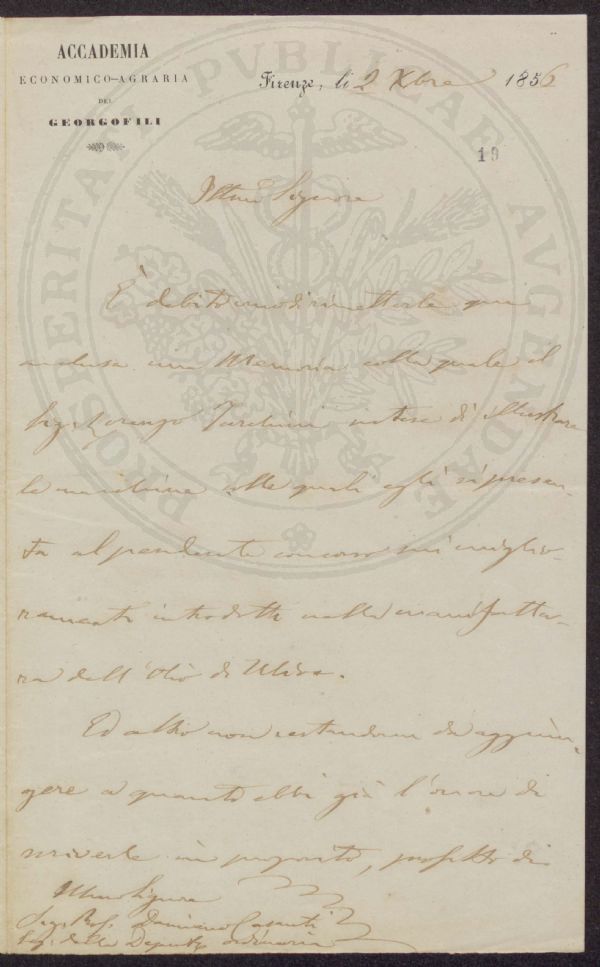 ACCADEMIA
ECONOMICO-AGRARIA
DEI
GEORGOFILI
Firenze, li 2 Xbre 1856
19
PROSPERITATI PVBLICAE AVGENDAE
Illmo Signore
È debito mio di rimetterle qui
inclusa una Memoria colla quale il
Sig. Lorenzo Turchini intese di illustrare
le macchine alle quali egli si presen-
ta al pendente concorso sui miglio-
ramenti introdotti nella manifattu-
ra dell'Olio di Uliva.
Ed altro non restandomi da aggiun-
gere a quanto ebbi già l'onore di
scriverle in proposito, profitto di
Illmo Signore
Sig. Prof. Damiano Casanti
Seg. della Deputaz. ordinaria